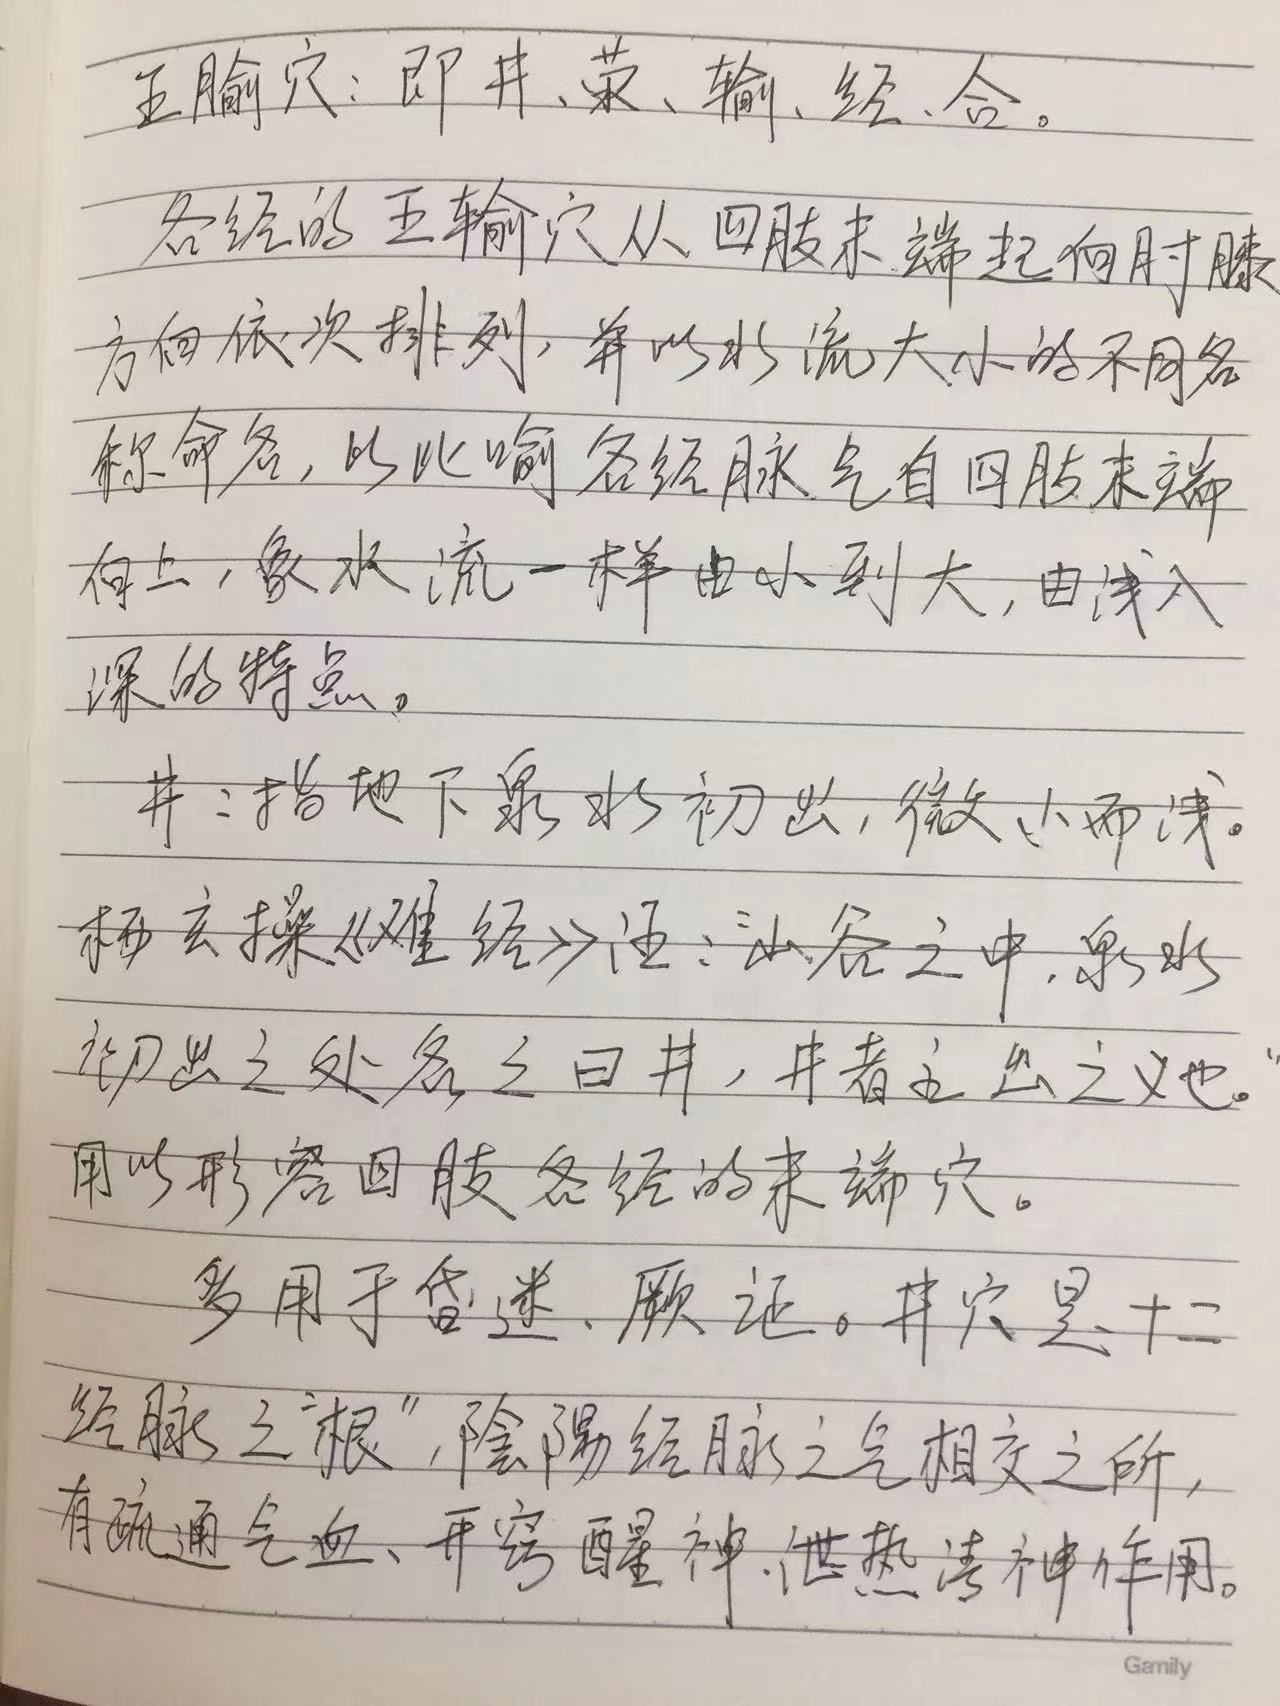 五腧穴：即井、荥、输、经、合。
各经的五输穴从四肢末端起向肘膝
方向依次排列，并以水流大小的不同名
称命名，以比喻各经脉气自四肢末端
向上，象水流一样由小到大，由浅入
深的特点。
井：指地下泉水初出，微小而浅。
杨玄操《难经》注：“山谷之中，泉水
初出之处名之曰井，井者主出之义也。”
用以形容四肢各经的末端穴。
多用于昏迷、厥证。井穴是十二
经脉之“根”，陰陽经脉之气相交之所，
有疏通气血、开窍醒神、泄热清神作用。
Gamily